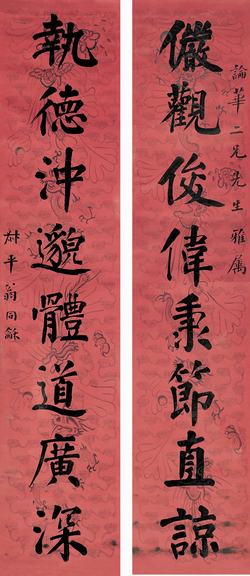 論華二兄先生雅屬
儼觀俊偉秉節直諒
執德沖邈體道廣深
尗平翁同龢